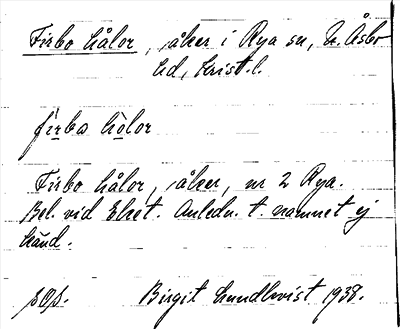 Firbo hålor, åker i Rya sn, N. Åsbo
hd, Krist. l.
firbo hòlor
Firbo hålor, åker, nr 2 Rya.
Bel. vid Eket. Anledn. t. namnet ej
känd.
Birgit Lundkvist 1938.